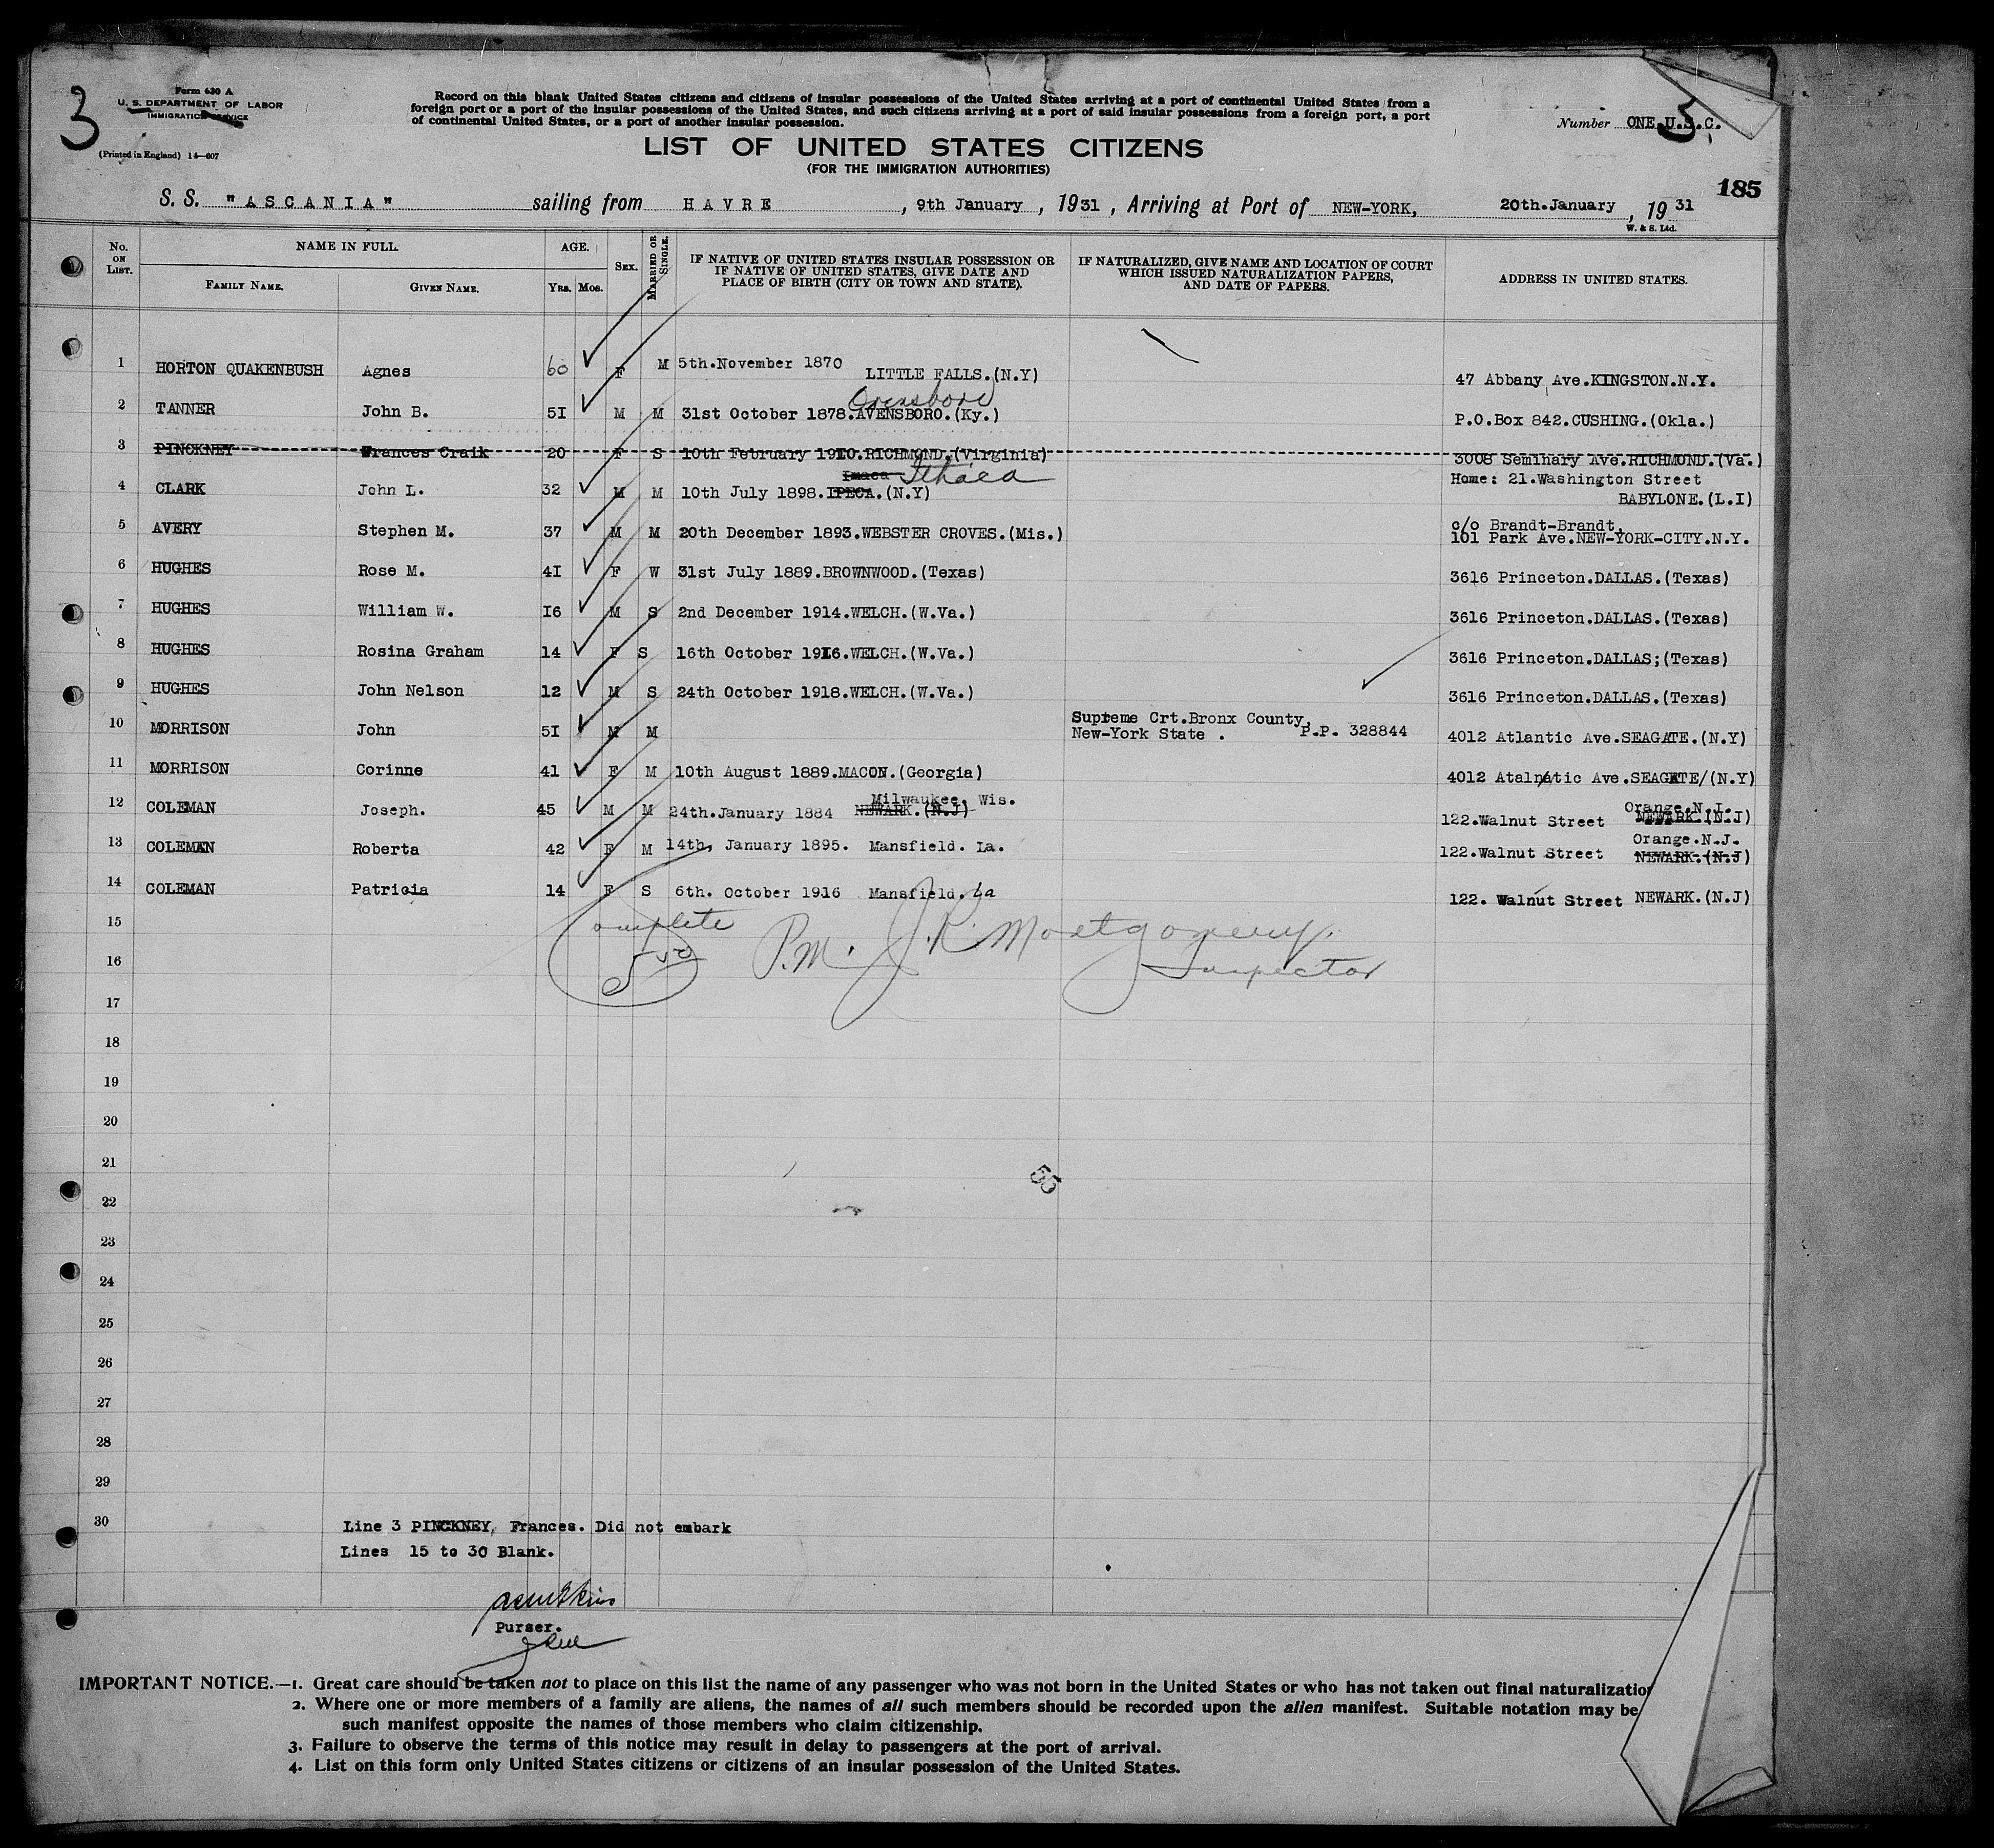 3
Form 630 A
U. S. DEPARTMENT OF LABOR
IMMIGRATION SERVICE
(Printed in England) 14—607
Record on this blank United States citizens and citizens of insular possessions of the United States arriving at a port of continental United States from a
foreign port or a port of the insular possessions of the United States, and such citizens arriving at a port of said insular possessions from a foreign port, a port
of continental United States, or a port of another insular possession.
Number ONE.U.S.C.
3
LIST OF UNITED STATES CITIZENS
(FOR THE IMMIGRATION AUTHORITIES)
185
S. S. "ASCANIA" sailing from HAVRE, 9th January, 1931, Arriving at Port of NEW-YORK, 20th.January, 1931
W. & S. Ltd.
No. ON LIST. NAME IN FULL. FAMILY NAME. GIVEN NAME. AGE. Yrs. Mos. SEX. MARRIED OR SINGLE. IF NATIVE OF UNITED STATES INSULAR POSSESSION OR IF NATIVE OF UNITED STATES, GIVE DATE AND PLACE OF BIRTH (CITY OR TOWN AND STATE). IF NATURALIZED, GIVE NAME AND LOCATION OF COURT WHICH ISSUED NATURALIZATION PAPERS, AND DATE OF PAPERS. ADDRESS IN UNITED STATES.
1 HORTON QUAKENBUSH Agnes 60 F M 5th.November 1870 LITTLE FALLS.(N.Y) 47 Abbany Ave.KINGSTON.N.Y.
2 TANNER John B. 5I M M 31st October 1878.AVENSBORO.(Ky.) Owensboro P.O.Box 842.CUSHING.(Okla.)
3 PINCKNEY Frances Craik 20 F S 10th February 1910.RICHMOND.(Virginia) 3008 Seminary Ave.RICHMOND.(Va.)
4 CLARK John L. 32 M M 10th July 1898.IPECA.(N.Y) Imaca Ithaca Home: 21.Washington Street
BABYLONE.(L.I)
5 AVERY Stephen M. 37 M M 20th December 1893.WEBSTER CROVES.(Mis.) c/o Brandt-Brandt,
101 Park Ave.NEW-YORK-CITY.N.Y.
6 HUGHES Rose M. 4I F W 31st July 1889.BROWNWOOD.(Texas) 3616 Princeton.DALLAS.(Texas)
7 HUGHES William W. I6 M S 2nd December 1914.WELCH.(W.Va.) 3616 Princeton.DALLAS.(Texas)
8 HUGHES Rosina Graham 14 F S 16th October 1916.WELCH.(W.Va.) 3616 Princeton.DALLAS;(Texas)
9 HUGHES John Nelson 12 M S 24th October 1918.WELCH.(W.Va.) 3616 Princeton.DALLAS.(Texas)
10 MORRISON John 5I M M Supreme Crt.Bronx County,
New-York State . P.P. 328844 4012 Atlantic Ave.SEAGATE.(N.Y)
11 MORRISON Corinne 41 F M 10th August 1889.MACON.(Georgia) 4012 Atalnatic Ave.SEAGATE/(N.Y)
12 COLEMAN Joseph. 45 M M 24th.January 1884 NEWARK.(N.J) Milwaukee. Wis. 122.Walnut Street NEWARK.(N.J) Orange.N.J.
13 COLEMAN Roberta 42 F M 14th, January 1895. Mansfield. La. 122.Walnut Street NEWARK.(N.J) Orange.N.J.
14 COLEMAN Patricia 14 F S 6th. October 1916 Mansfield. La 122. Walnut Street NEWARK.(N.J)
15 Complete P.M. J.R. Montgomery.
16 Inspector
17
18
19
20
21
22
55
23
24
25
26
27
28
29
30 Line 3 PINCKNEY, Frances. Did not embark
Lines 15 to 30 Blank.
Purser.
IMPORTANT NOTICE.—1. Great care should be taken not to place on this list the name of any passenger who was not born in the United States or who has not taken out final naturalization
2. Where one or more members of a family are aliens, the names of all such members should be recorded upon the alien manifest. Suitable notation may be
such manifest opposite the names of those members who claim citizenship.
3. Failure to observe the terms of this notice may result in delay to passengers at the port of arrival.
4. List on this form only United States citizens or citizens of an insular possession of the United States.